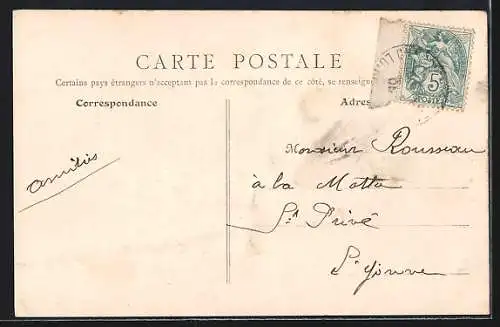 CARTE POSTALE
Certains pays étrangers n'acceptant pas la correspondance de ce côté, se renseigne
Correspondance
Adres
5
POSTE
Monsieur Rousseau
amitiés
à la Motte
St Privé
P. Yonne